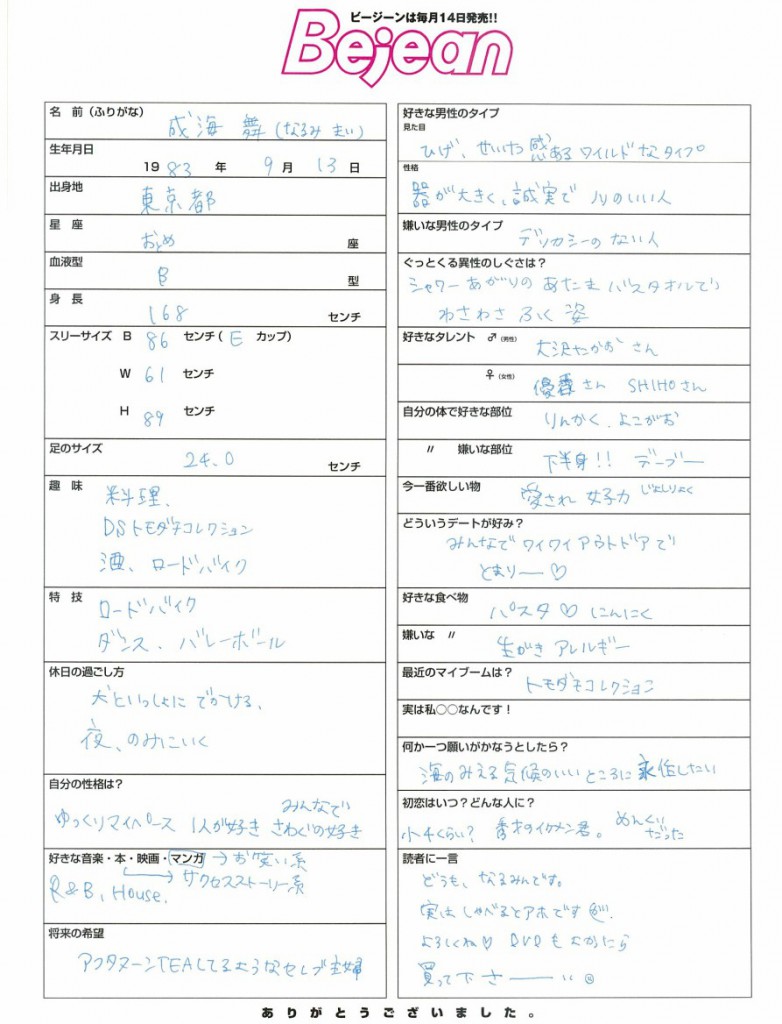 ビージーンは毎月14日発売!!
Bejean
名 前(ふりがな)
成海 舞(なるみ まい)
生年月日
1983年 9月 13日
出身地
東京都
星 座
おとめ 座
血液型
B 型
身 長
168 センチ
スリーサイズ B 86 センチ( E カップ)
W 61 センチ
H 89 センチ
足のサイズ
24.0 センチ
趣 味
料理、
DSトモダチコレクション
酒、ロードバイク
特 技
ロードバイク
ダンス、バレーボール
休日の過ごし方
犬といっしょに でかける、
夜、のみにいく
自分の性格は?
みんなで
ゆっくりマイペース 1人が好き さわぐの好き
好きな音楽・本・映画・マンガ→お笑い系
→サクセスストーリー系
R&B、House.
将来の希望
アフタヌーンTEAしてるようなセレブ主婦
好きな男性のタイプ
見た目
ひげ、せいけつ感あるワイルドなタイプ
性格
器が大きく、誠実で ノリのいい人
嫌いな男性のタイプ
デリカシーのない人
ぐっとくる異性のしぐさは?
シャワーあがりの あたま バスタオルで
わさわさ ふく 姿
好きなタレント ♂(男性) 大沢たかお さん
♀(女性) 優香さん SHIHOさん
自分の体で好きな部位 りんかく、よこがお
〃 嫌いな部位 下半身!! デーブー
今一番欲しい物 愛され 女子力 じょしりょく
どういうデートが好み?
みんなで ワイワイ アウトドアで
とまりー♡
好きな食べ物
パスタ♡ にんにく
嫌いな 〃
生がき アレルギー
最近のマイブームは?
トモダチコレクション
実は私○○なんです!
何か一つ願いがかなうとしたら?
海のみえる気候のいいところに永住したい
初恋はいつ?どんな人に?
小4くらい? 秀才のイケメン君。 めんくい
だった
読者に一言
どうも、なるみんです。
実は しゃべるとアホです
よろしくね♡ DVDもよかったら
買って下さーい
ありがとうございました。